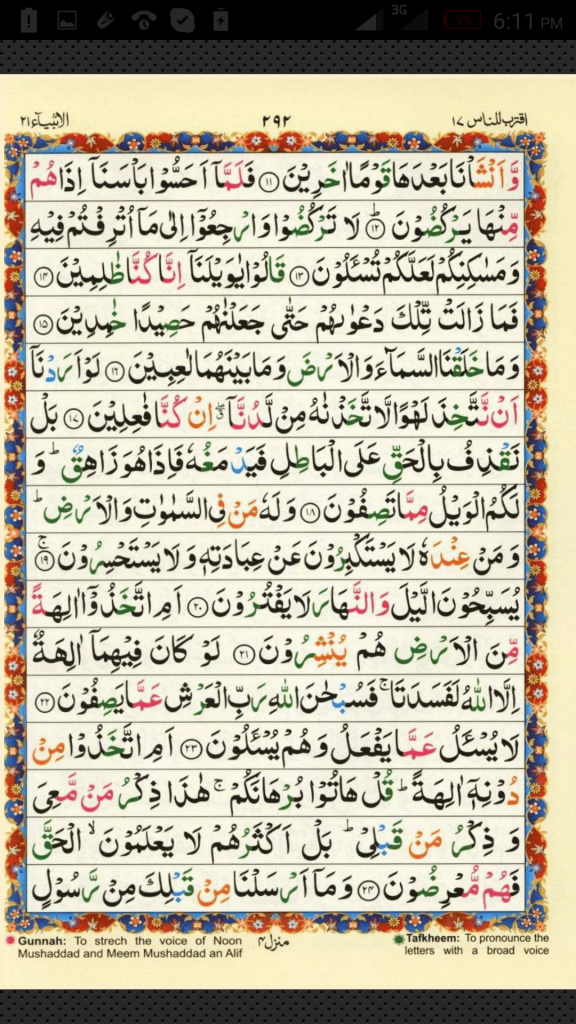 3G 95 6:11 PM
اقترب للناس ١٧ ٢٩٢ الانبيآء ٢١
وَّاَنْشَاْنَا بَعْدَهَا قَوْمًا اٰخَرِيْنَ ﴿۱۱﴾ فَلَمَّآ اَحَسُّوْا بَاْسَنَآ اِذَا هُمْ
مِّنْهَا يَرْكُضُوْنَ ﴿۱۲﴾ؕ لَا تَرْكُضُوْا وَارْجِعُوْٓا اِلٰى مَآ اُتْرِفْتُمْ فِيْهِ
وَمَسٰكِنِكُمْ لَعَلَّكُمْ تُسْـَٔلُوْنَ ﴿۱۳﴾ قَالُوْا يٰوَيْلَنَآ اِنَّا كُنَّا ظٰلِمِيْنَ ﴿۱۴﴾
فَمَا زَالَتْ تِّلْكَ دَعْوٰىهُمْ حَتّٰى جَعَلْنٰهُمْ حَصِيْدًا خٰمِدِيْنَ ﴿۱۵﴾
وَمَا خَلَقْنَا السَّمَآءَ وَالْاَرْضَ وَمَا بَيْنَهُمَا لٰعِبِيْنَ ﴿۱۶﴾ لَوْ اَرَدْنَآ
اَنْ نَّتَّخِذَ لَهْوًا لَّاتَّخَذْنٰهُ مِنْ لَّدُنَّآ ۖ اِنْ كُنَّا فٰعِلِيْنَ ﴿۱۷﴾ بَلْ
نَقْذِفُ بِالْحَقِّ عَلَى الْبَاطِلِ فَيَدْمَغُهٗ فَاِذَا هُوَ زَاهِقٌ ؕ وَ
لَكُمُ الْوَيْلُ مِمَّا تَصِفُوْنَ ﴿۱۸﴾ وَلَهٗ مَنْ فِى السَّمٰوٰتِ وَالْاَرْضِ ؕ
وَمَنْ عِنْدَهٗ لَا يَسْتَكْبِرُوْنَ عَنْ عِبَادَتِهٖ وَلَا يَسْتَحْسِرُوْنَ ﴿۱۹﴾ۚ
يُسَبِّحُوْنَ الَّيْلَ وَالنَّهَارَ لَا يَفْتُرُوْنَ ﴿۲۰﴾ اَمِ اتَّخَذُوْٓا اٰلِهَةً
مِّنَ الْاَرْضِ هُمْ يُنْشِرُوْنَ ﴿۲۱﴾ لَوْ كَانَ فِيْهِمَآ اٰلِهَةٌ
اِلَّا اللّٰهُ لَفَسَدَتَا ۚ فَسُبْحٰنَ اللّٰهِ رَبِّ الْعَرْشِ عَمَّا يَصِفُوْنَ ﴿۲۲﴾
لَا يُسْـَٔلُ عَمَّا يَفْعَلُ وَهُمْ يُسْـَٔلُوْنَ ﴿۲۳﴾ اَمِ اتَّخَذُوْا مِنْ
دُوْنِهٖٓ اٰلِهَةً ؕ قُلْ هَاتُوْا بُرْهَانَكُمْ ۚ هٰذَا ذِكْرُ مَنْ مَّعِىَ
وَ ذِكْرُ مَنْ قَبْلِىْ ؕ بَلْ اَكْثَرُهُمْ لَا يَعْلَمُوْنَ ۙ الْحَقَّ
فَهُمْ مُّعْرِضُوْنَ ﴿۲۴﴾ وَمَآ اَرْسَلْنَا مِنْ قَبْلِكَ مِنْ رَّسُوْلٍ
Gunnah: To strech the voice of Noon
Mushaddad and Meem Mushaddad an Alif
منزل ۴
Tafkheem: To pronounce the
letters with a broad voice